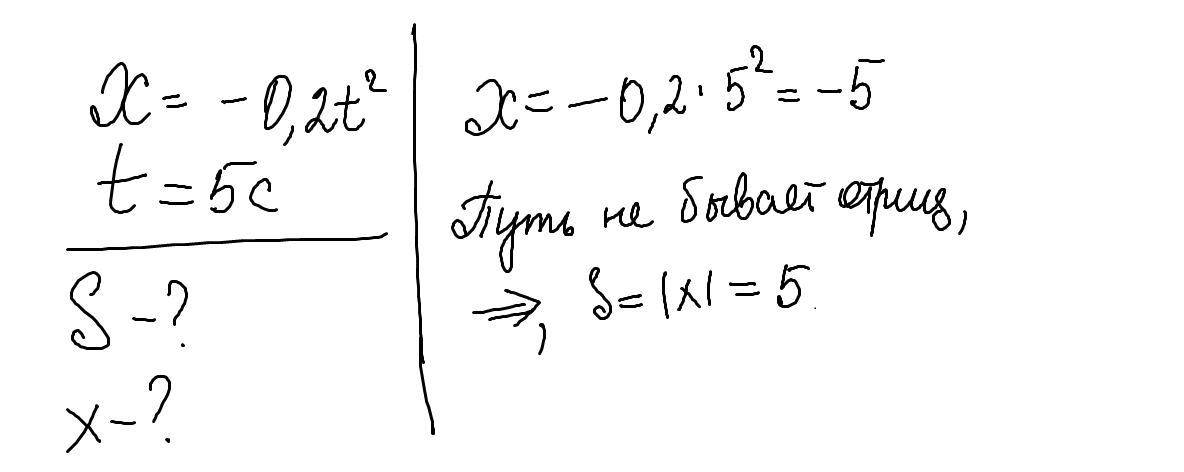 x = -0,2t²
t = 5c
S - ?
x - ?
x = -0,2 · 5² = -5
Путь не бывает отриц,
⇒, S = |x| = 5